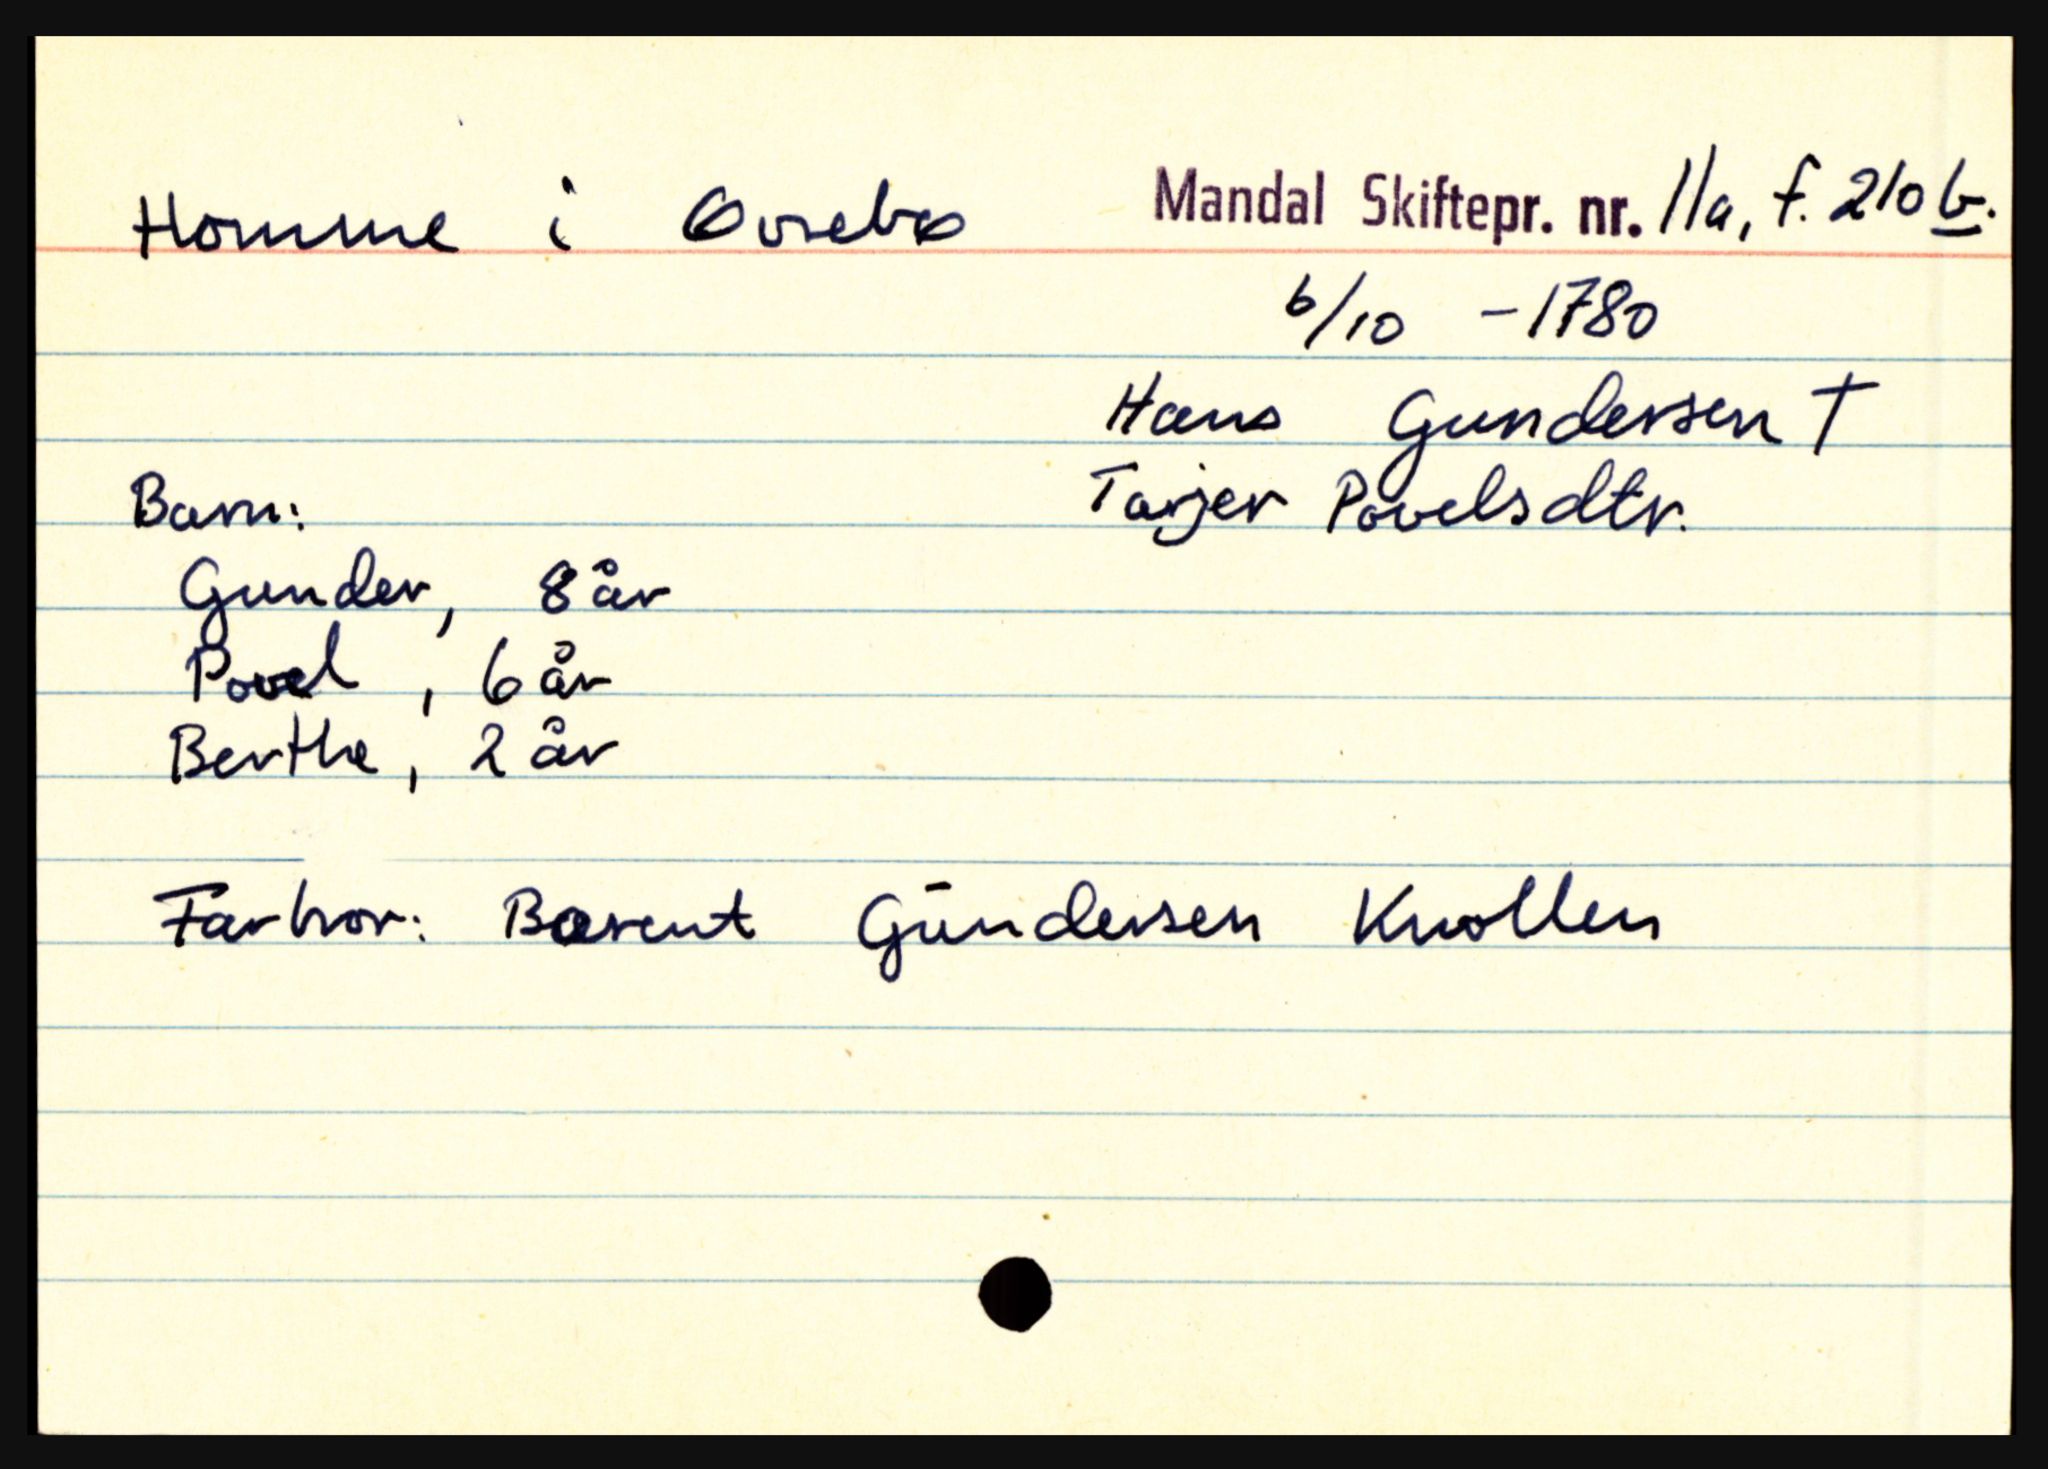 Homme i Øvrebø Mandal Skiftepr. nr. 11a, f. 210 b.
6/10 - 1780
Hans Gundersen †
Barn: Tarjer Povelsdtr.
Gunder, 8 år
Povel, 6 år
Berthe, 2 år
Farbror: Berent Gundersen Knollen